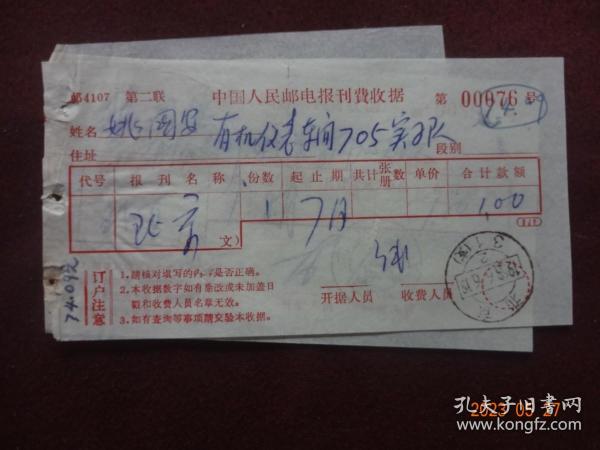 邮4107 第二联 中国人民邮电报刊費收据 第 00076 号
姓名 姚国安 有机仪表车间705实习队
住址 段别
代号 报刊名称 份数 起止期 共计张册数 单价 合计款额
北京 文) 1 7月 100
订户注意
1.請核对填写的内容是否正确。
2.本收据数字如有涂改或未加盖日
戳和收费人员名章无效。
3.如有查詢等事項請交驗本收据。
开据人员 收费人员
2023 05 27
孔夫子旧書网
www.kongfz.com